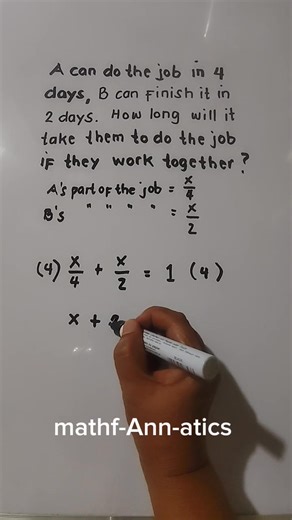 A can do the job in 4
days, B can finish it in
2 days. How long will it
take them to do the job
if they work together?
A's part of the job = x/4
B's " " " " = x/2
(4) x/4 + x/2 = 1 (4)
x + 2
mathf-Ann-atics